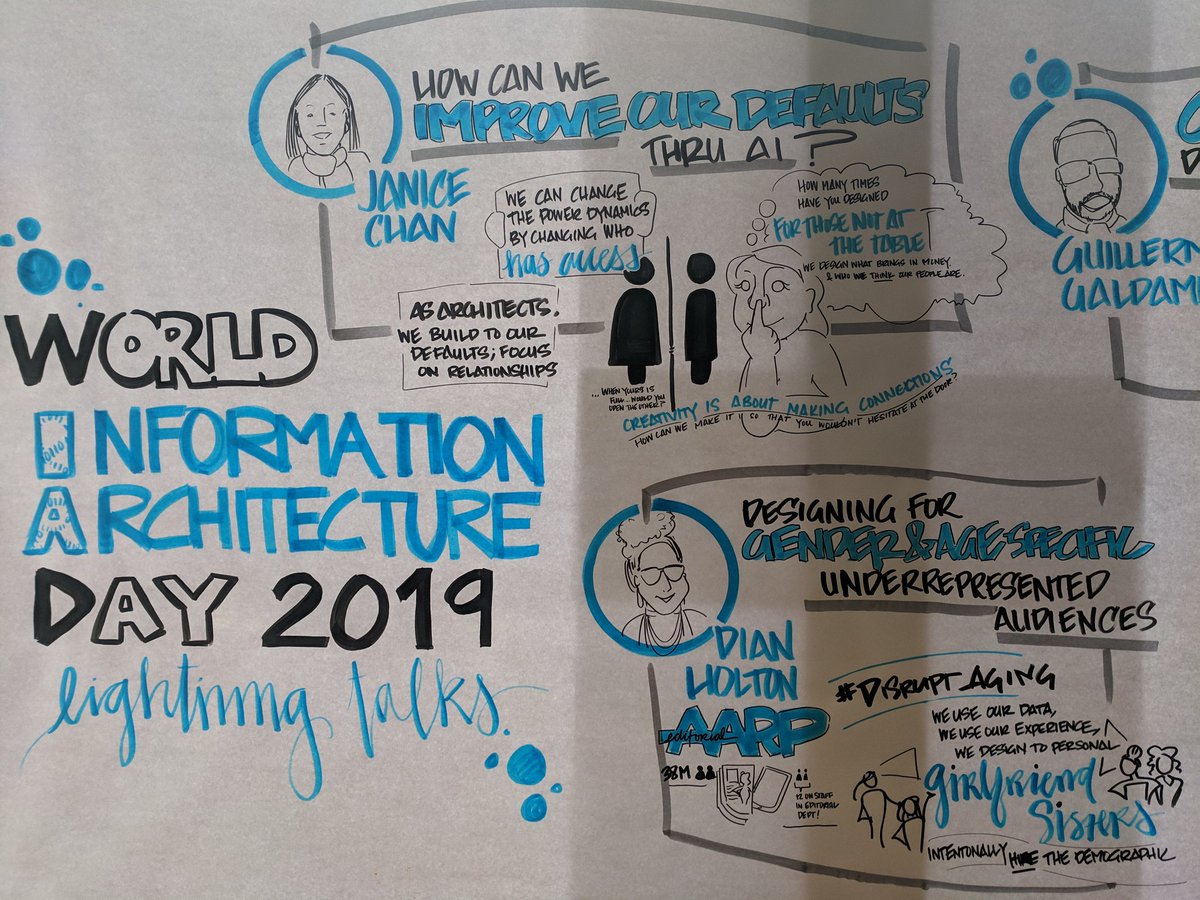 WORLD
INFORMATION
ARCHITECTURE
DAY 2019
lightning talks.
JANICE
CHAN
HOW CAN WE
IMPROVE OUR DEFAULTS
THRU AI?
WE CAN CHANGE
THE POWER DYNAMICS
BY CHANGING WHO
has access
AS ARCHITECTS.
WE BUILD TO OUR
DEFAULTS; FOCUS
ON RELATIONSHIPS
HOW MANY TIMES
HAVE YOU DESIGNED
FOR THOSE NOT AT
THE TABLE
WE DESIGN WHAT BRINGS IN MONEY
& WHO WE THINK OUR PEOPLE ARE.
... WHEN YOURS IS
FULL.. WOULD YOU
OPEN THE OTHER?
CREATIVITY IS ABOUT MAKING CONNECTIONS
HOW CAN WE MAKE IT SO THAT YOU WOULDN'T HESITATE AT THE DOOR?
GUILLERM
GALDAM
DIAN
HOLTON
editorial
AARP
38M
12 ON STAFF
IN EDITORIAL
DEPT!
DESIGNING FOR
GENDER & AGE SPECIFIC
UNDERREPRESENTED
AUDIENCES
#DISRUPT_AGING
WE USE OUR DATA,
WE USE OUR EXPERIENCE,
WE DESIGN TO PERSONAL
girlfriend
Sisters
INTENTONALLY HIRE THE DEMOGRAPHIC